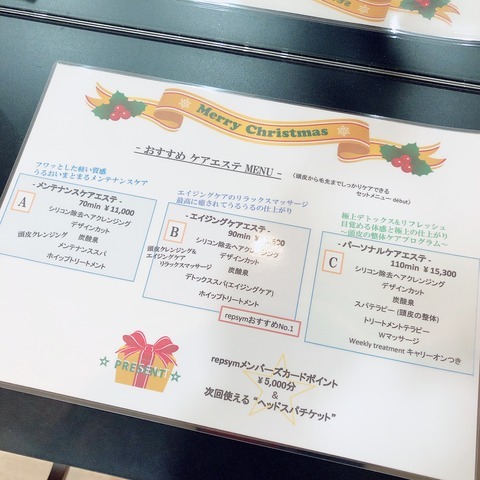 Merry Christmas
- おすすめ ケアエステ MENU -
(頭皮から毛先までしっかりケアできる
セットメニュー début)
フワッとした軽い質感
うるおいまとまるメンテナンスケア
A
- メンテナンスケアエステ -
70min ￥11,000
シリコン除去ヘアクレンジング
デザインカット
炭酸泉
頭皮クレンジング
メンテナンススパ
ホイップトリートメント
エイジングケアのリラックスマッサージ
最高に癒されてうるうるの仕上がり
B
- エイジングケアエステ -
90min
シリコン除去ヘアクレンジング
デザインカット
炭酸泉
頭皮クレンジング&
エイジングケア
リラックスマッサージ
デトックススパ(エイジングケア)
ホイップトリートメント
repsymおすすめNo.1
極上デトックス&リフレッシュ
目覚める体感と極上の仕上がり
～頭皮の整体ケアプログラム～
C
- パーソナルケアエステ -
110min ￥15,300
シリコン除去ヘアクレンジング
デザインカット
炭酸泉
スパテラピー (頭皮の整体)
トリートメントテラピー
Wマッサージ
Weekly treatment キャリーオンつき
PRESENT
repsymメンバーズカードポイント
￥5,000分
&
次回使える "ヘッドスパチケット"